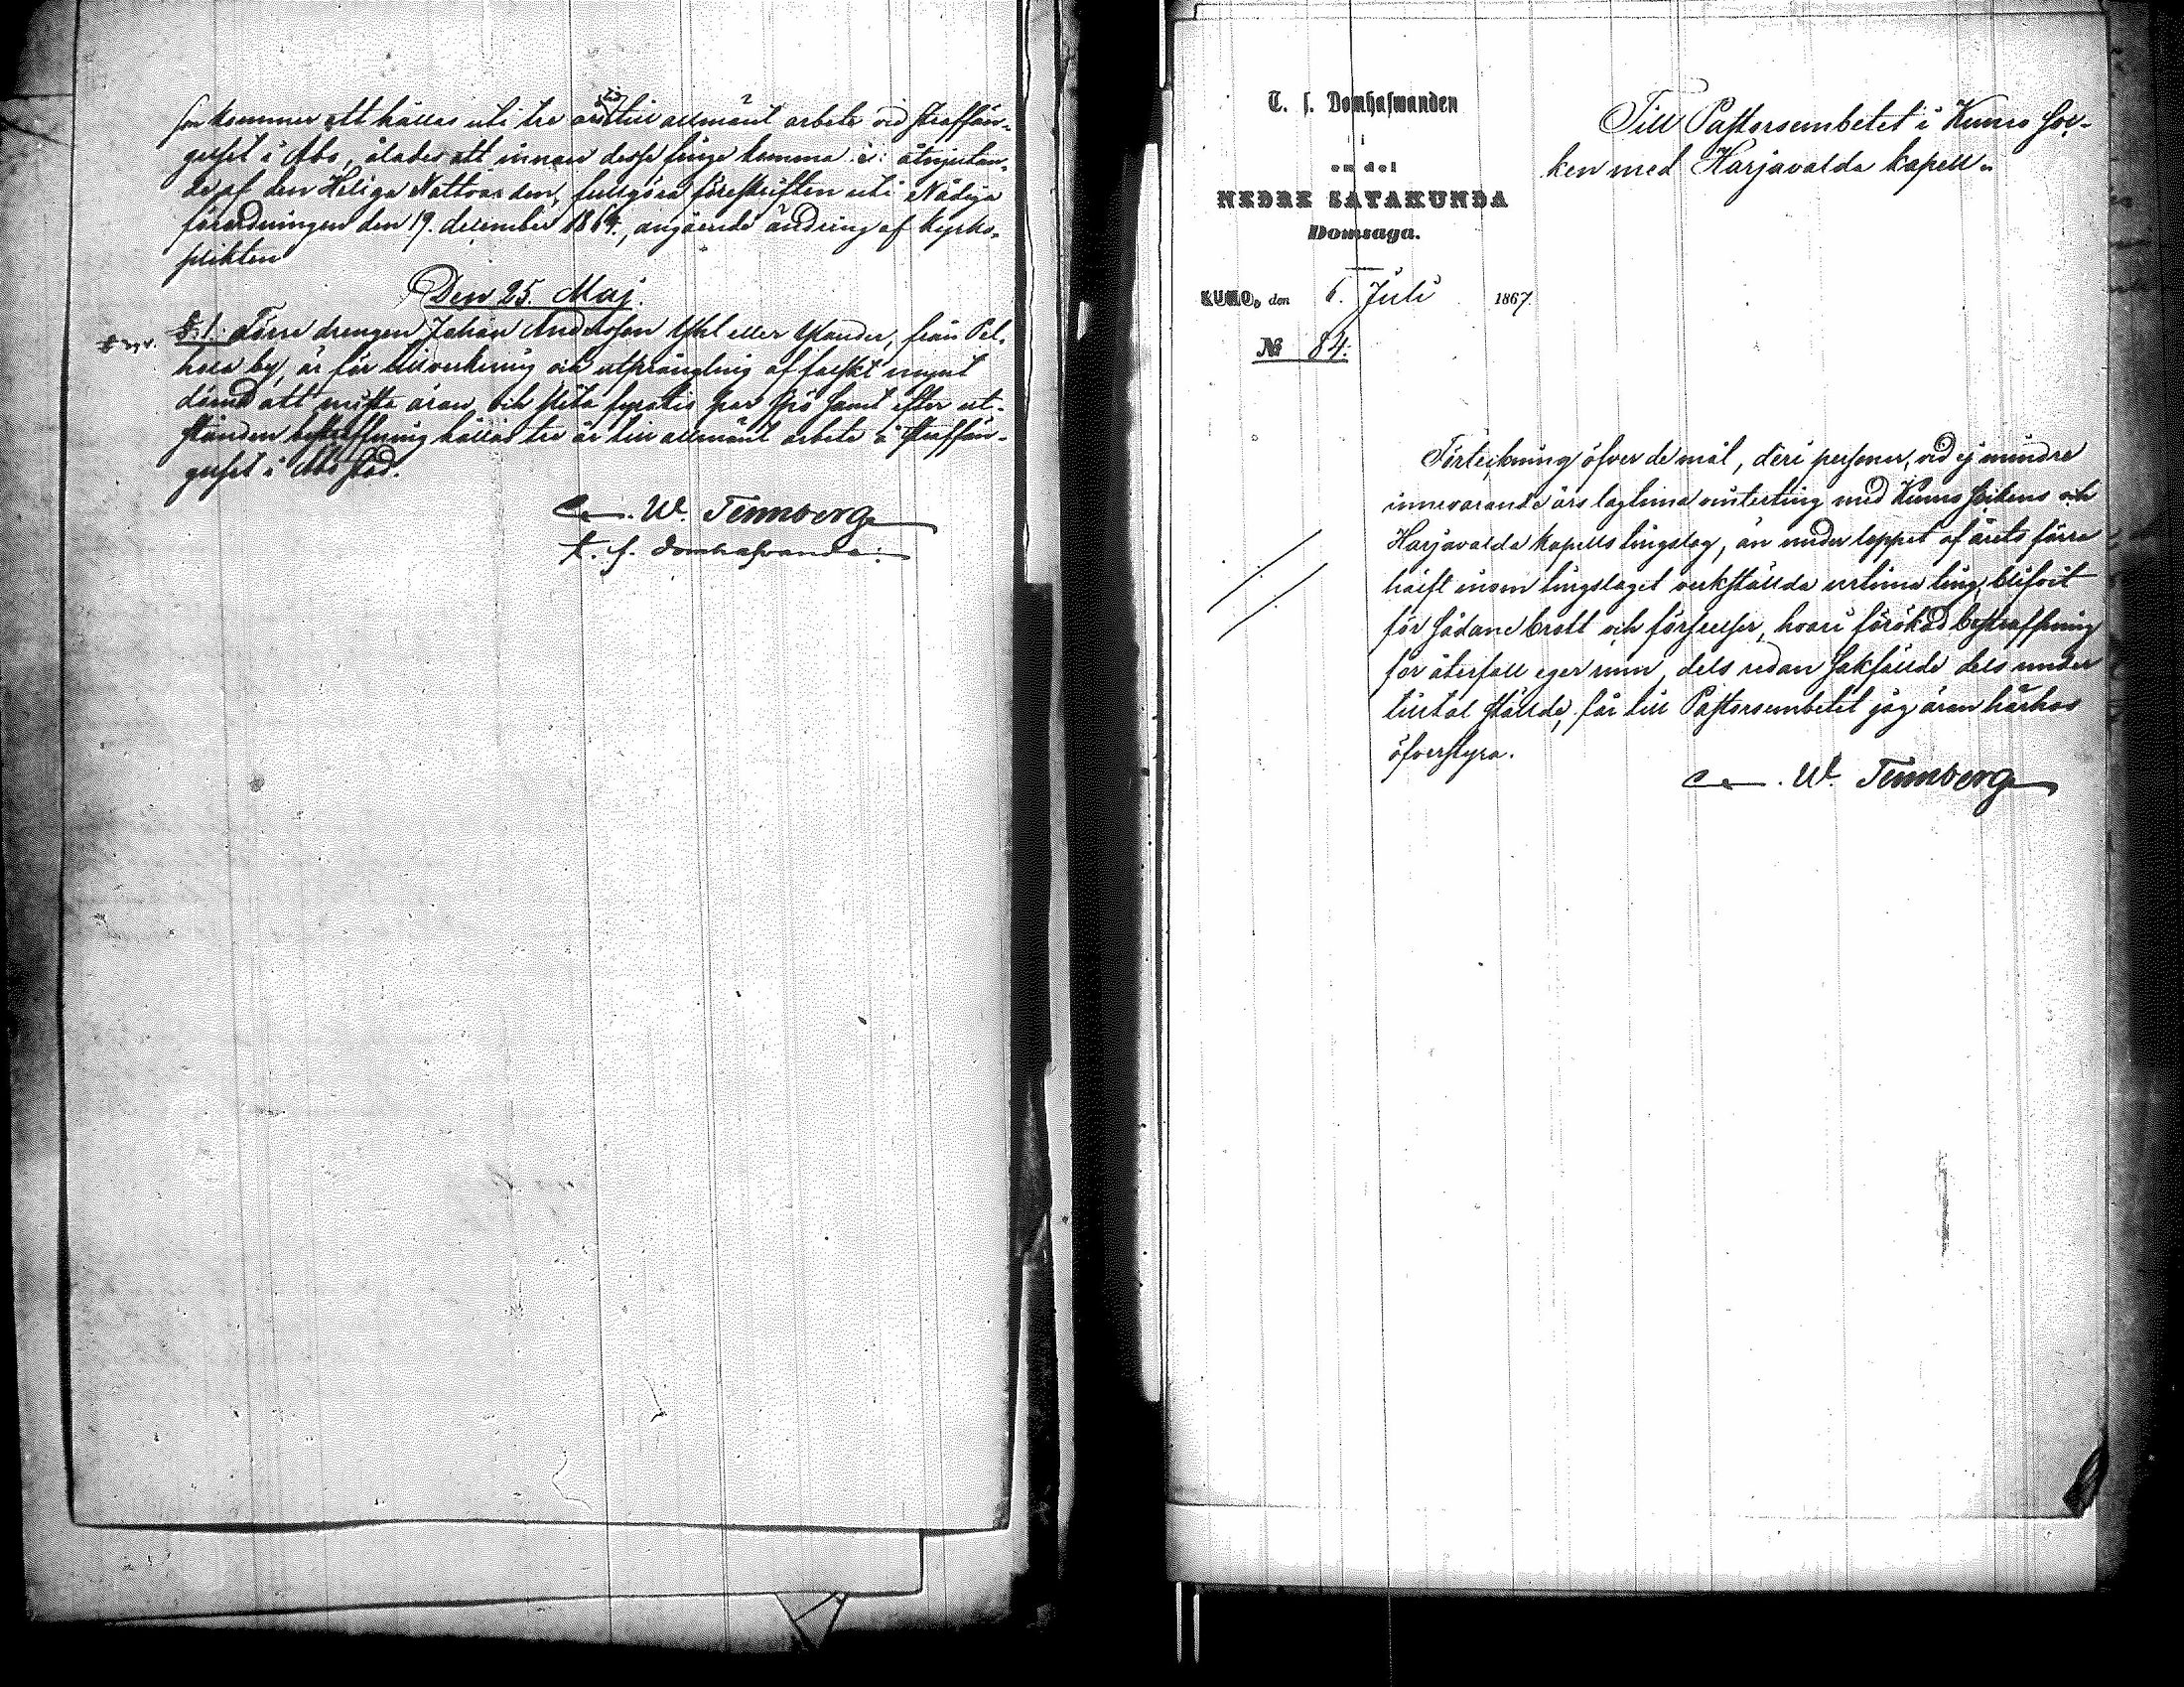 som kommer att hållas uti tre års tid till allmänt arbete vid straffän-
gelset i Åbo, ålades att innan desse finge komma i åtnjutan-
de af den Heliga Nattvarden, fullgöra föreskriften uti Nådiga
förordningen den 19. december 1864., angående ändring af kyrko-
plikten
Den 25. Maj.
§. 1. Förre drengen Johan Andersson eller från Pel-
hola by, är för tillverkning och utprångling af falskt mynt
dömd att mista äran, och slita fyratio par spö samt efter ut-
stånden bestraffning hållas tre år till allmänt arbete å straffän-
gelset i Åbo stad.
W. Tennberg
t. f. domhafvande.
T. f. Domhafwanden
i
en del
NEDRE SATAKUNDA
Domsaga.
KUMO, den 6. Juli 1867.
№ 84.
Till Pastorsembetet i Kumo Soc-
ken med Harjavalda kapell.
Förteckning öfver de mål, deri personer, vid ej mindre
innevarande års lagtima vinterting med Kumo Sockens och
Harjavalda kapells tingslag, än under loppet af årets förra
hälft inom tingslaget verkställda urtima ting, blifvit
för sådane brott och förseelser, hvari förökad bestraffning
för återfall eger rum, dels redan sakfällde dels under
tilltal ställde, får till Pastorsembetet jag äran härhos
öfverstyra.
W. Tennberg